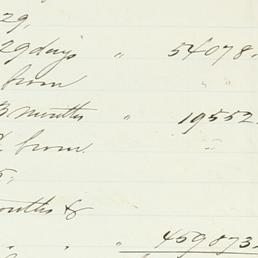 29,
29 days " 54078.
from "
3 months " 19552.
from. "
5;
months &
" " " 459873.